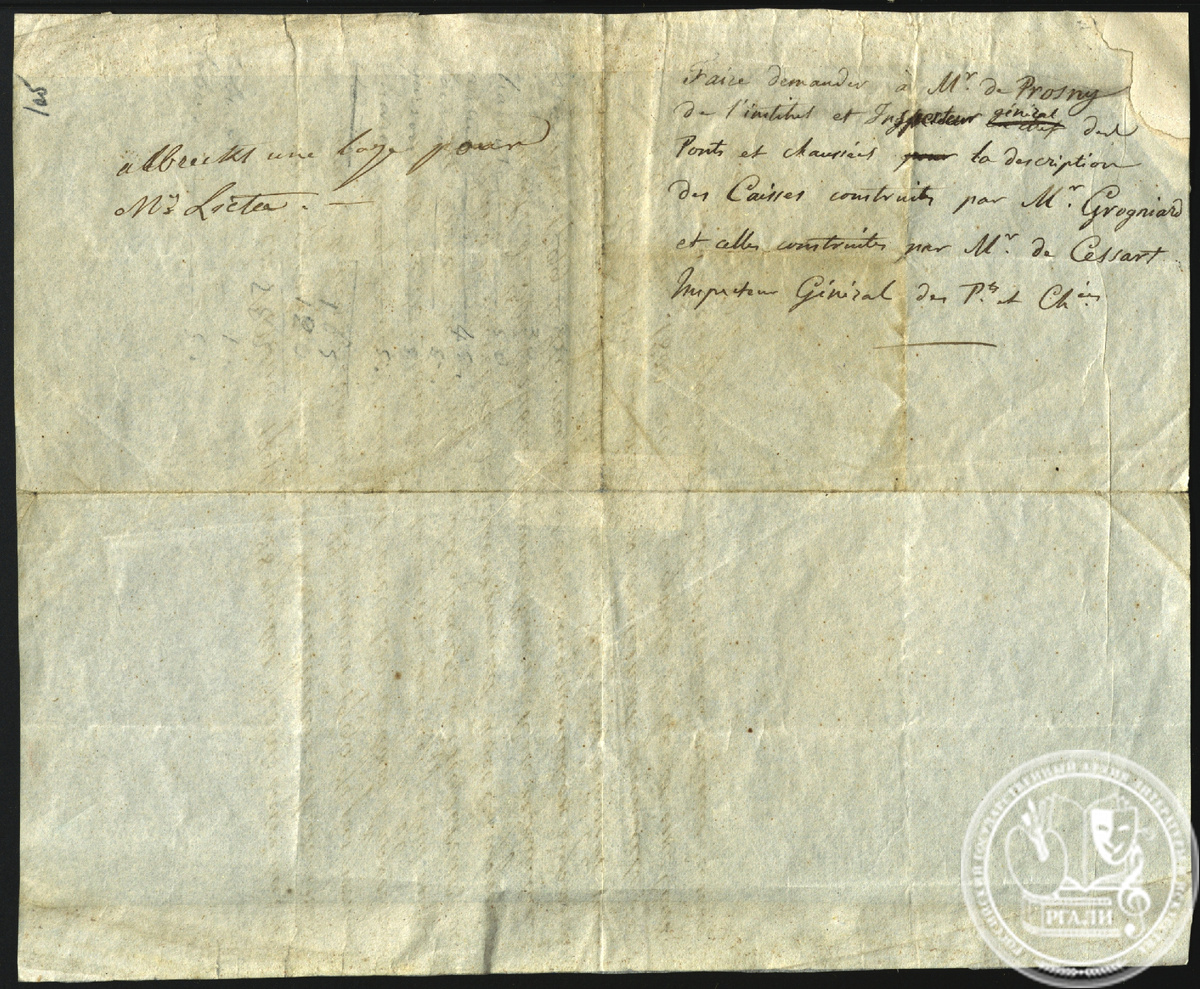 105
albrecht une loge pour
Mrs Licter. —
Faire demander à Mr. de Prosny
de l'institut et Inspecteur général des
Ponts et chaussées pour la description
des Caisses construites par Mr. Grogniard
et celles construites par Mr. de Cessart
Inspecteur Général des P.ts et Ch.ées
РОССИЙСКИЙ ГОСУДАРСТВЕННЫЙ АРХИВ ЛИТЕРАТУРЫ И ИСКУССТВА
РГАЛИ